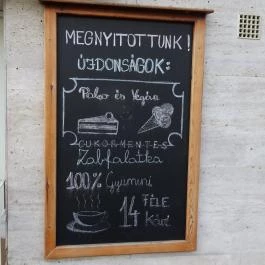 MEGNYITOTTUNK!
ÚJDONSÁGOK:
Paleo és Vegán
CUKORMENTES
Zabfalatka
100% Gyümi
14 FÉLE
Kávé